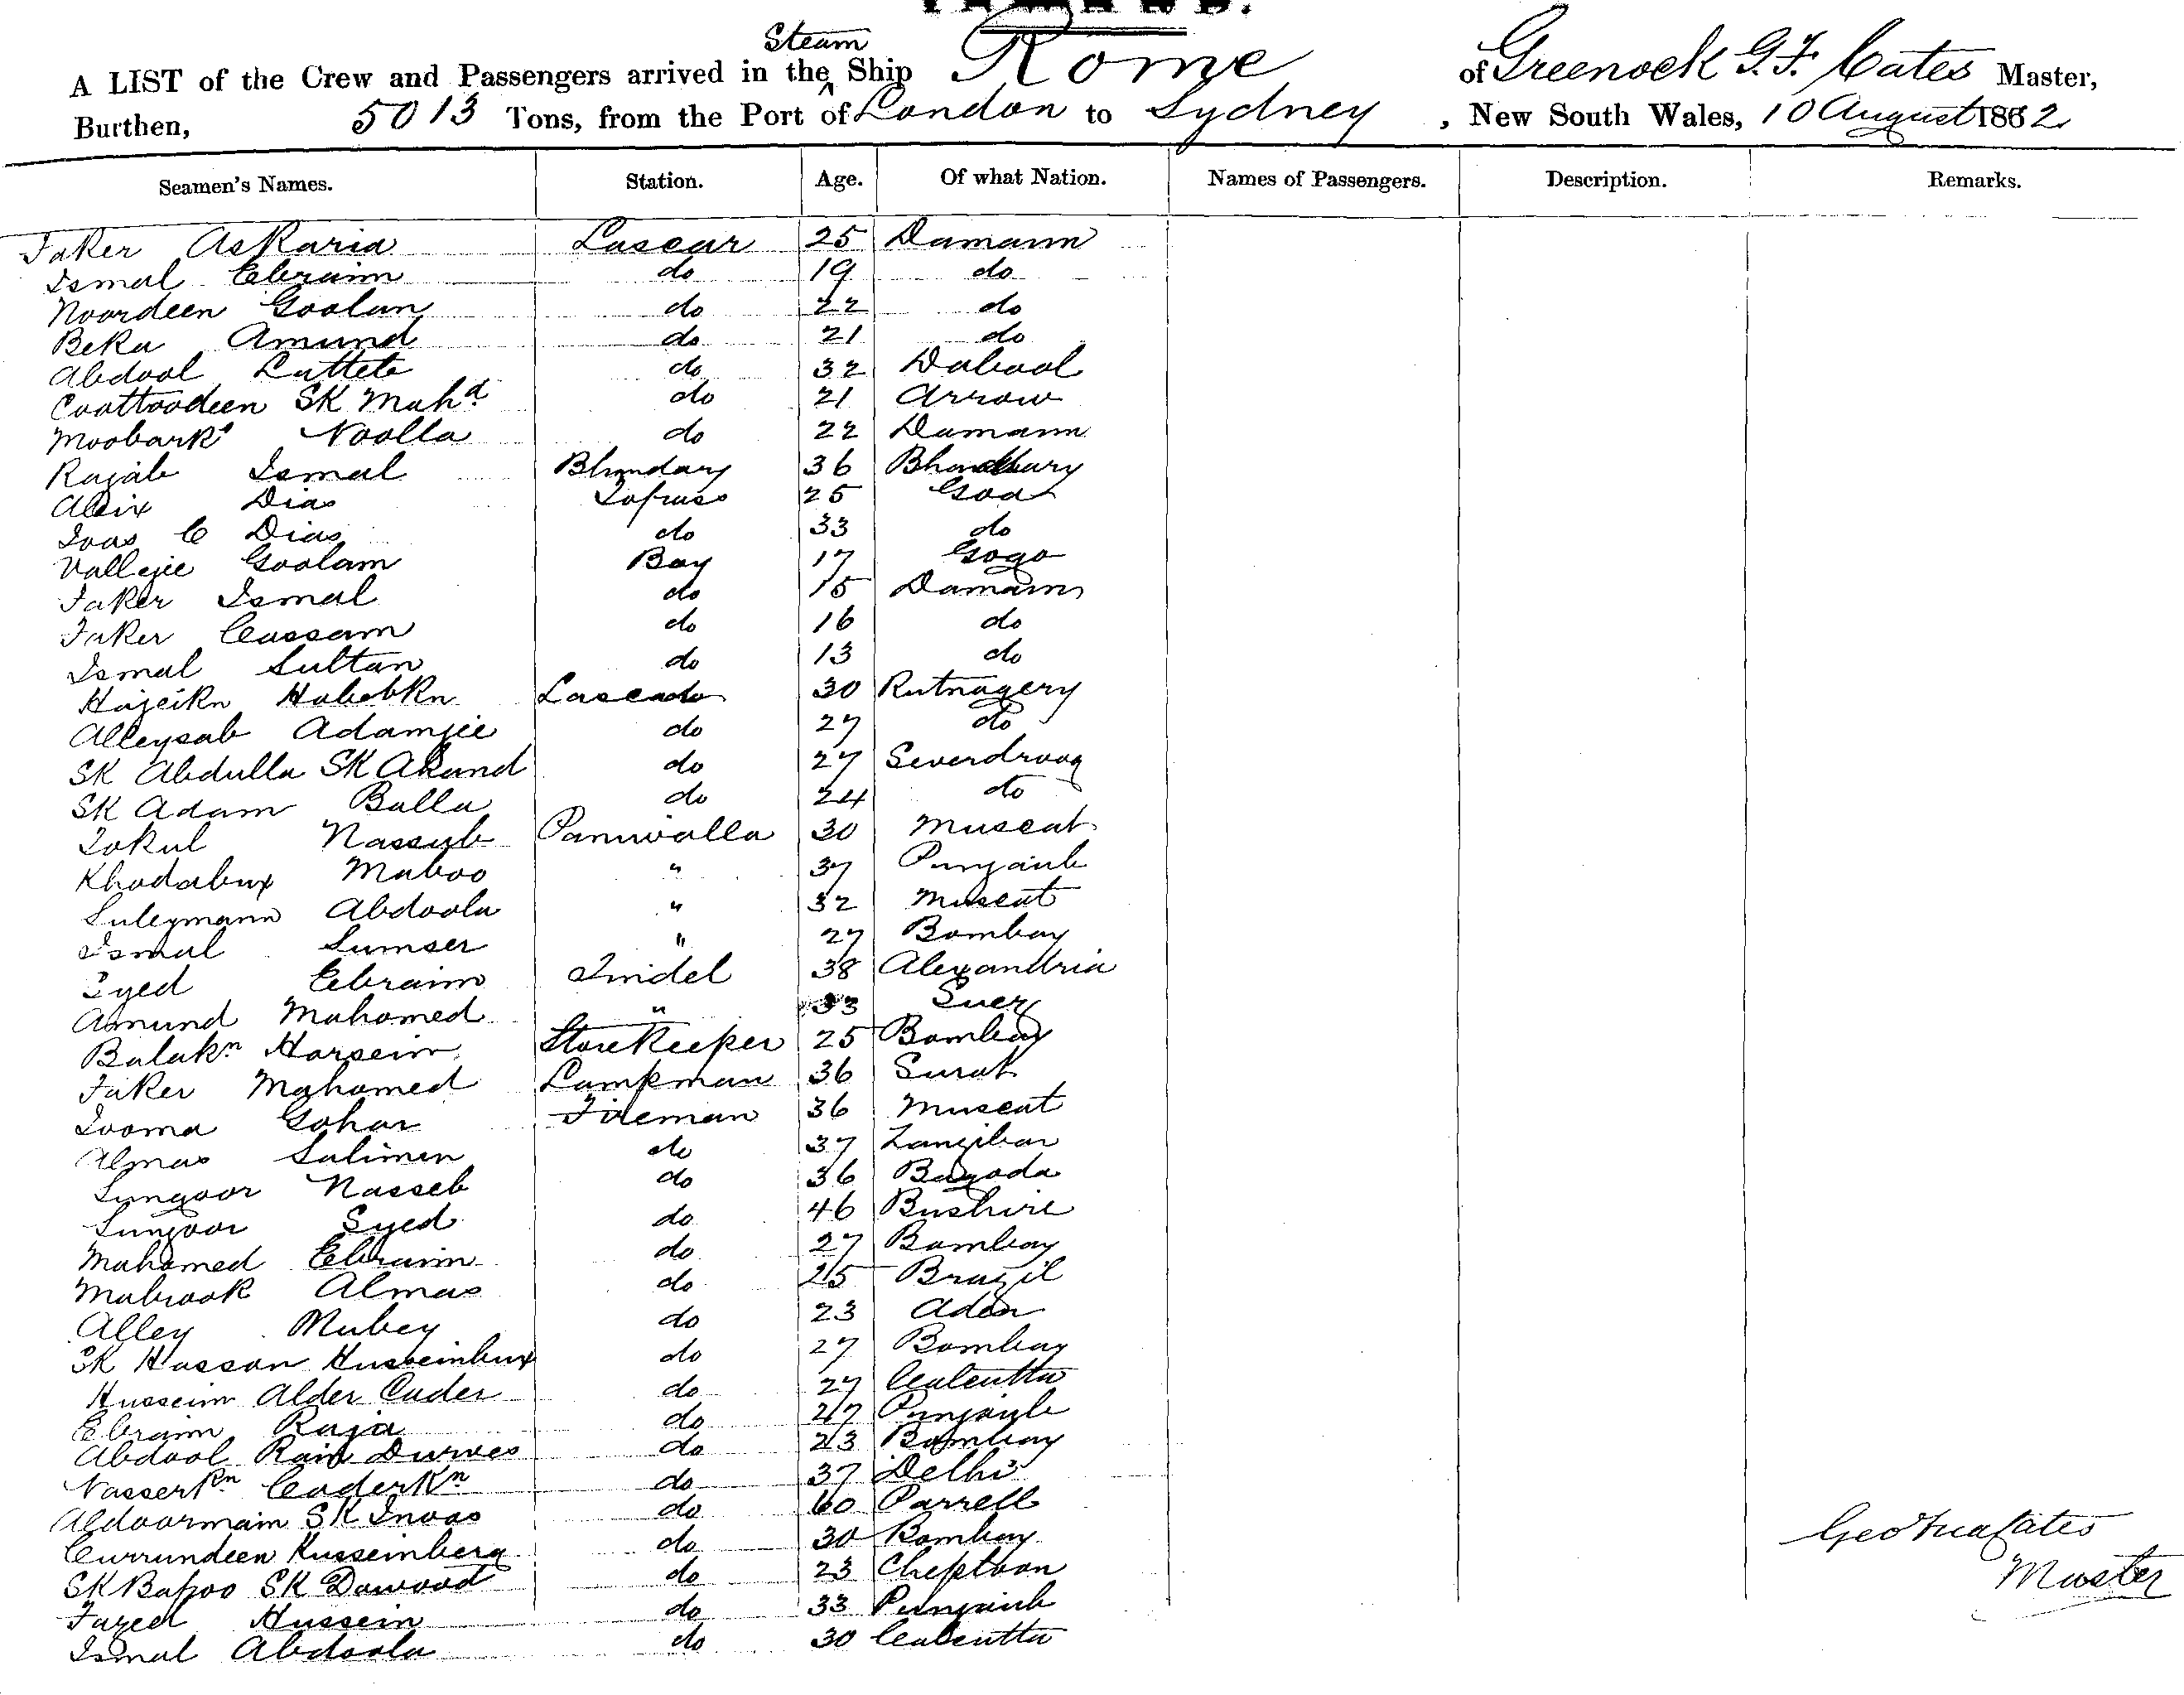 A LIST of the Crew and Passengers arrived in the Steam Ship Rome of Greenock G. F. Cates Master,
Burthen, 5013 Tons, from the Port of London to Sydney, New South Wales, 10 August 1882
Seamen's Names. Station. Age. Of what Nation. Names of Passengers. Description. Remarks.
Faker Askaria Lascar 25 Damann
Ismal Ebraim do 19 do
Noordeen Goolam do 22 do
Beka Amund do 21 do
Abdool Lutteb do 32 Dabool
Coottoodeen SK Mahd do 21 Arrow
Moobark Noolla do 22 Damann
Rajab Ismal Bhndary 36
Aleix Dias Topass 25 Goa
Joas C Dias do 33 do
Vallejee Goolam Boy 17 Gogo
Faker Ismal do 15 Damann
Faker Cassam do 16 do
Ismal Sultan do 13 do
Hajeikn Habebkn Lascado 30 Rutnagery
Alleysab Adamjee do 27 do
SK Abdulla SK Akund do 27 Severdroog
SK Adam Balla do 24 do
Tokul Nassyb Paniwalla 30 Muscat
Khodabux Maboo " 37 Punjaub
Suleymann Abdoola " 32 Muscat
Ismal Sumser " 27 Bombay
Syed Ebraim Tindel 38 Alexandria
Amund Mahomed " 33 Suez
Balakn Horsein Storekeeper 25 Bombay
Faker Mahomed Lampman 36 Surat
Jooma Gohar Fireman 36 Muscat
Almas Salimen do 37 Zanzibar
Sungoor Nasseb do 36 Bagoda
Sungoor Syed do 46 Bushire
Mahomed Ebraim do 27 Bombay
Mabrook Almas do 25 Brazil
Alley Mubey do 23 Aden
SK Hassan Husseinbux do 27 Bombay
Hussein Alder Cader do 27 Calcutta
Ebraim Raja do 27 Punjaub
Abdool Raib Durves do 23 Bombay
Nasserkn Caderkn do 37 Delhi
Abdoormain SK Inoos do 60 Parrell
Currundeen Husseinberg do 30 Bombay
SK Bapoo SK Dawood do 23 Cheptoon
Fazed Hussein do 33 Punjaub
Ismal Abdoola do 30 Calcutta
Master